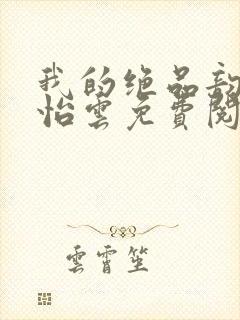 我的绝品
怡雲免費閱
雲霄笙